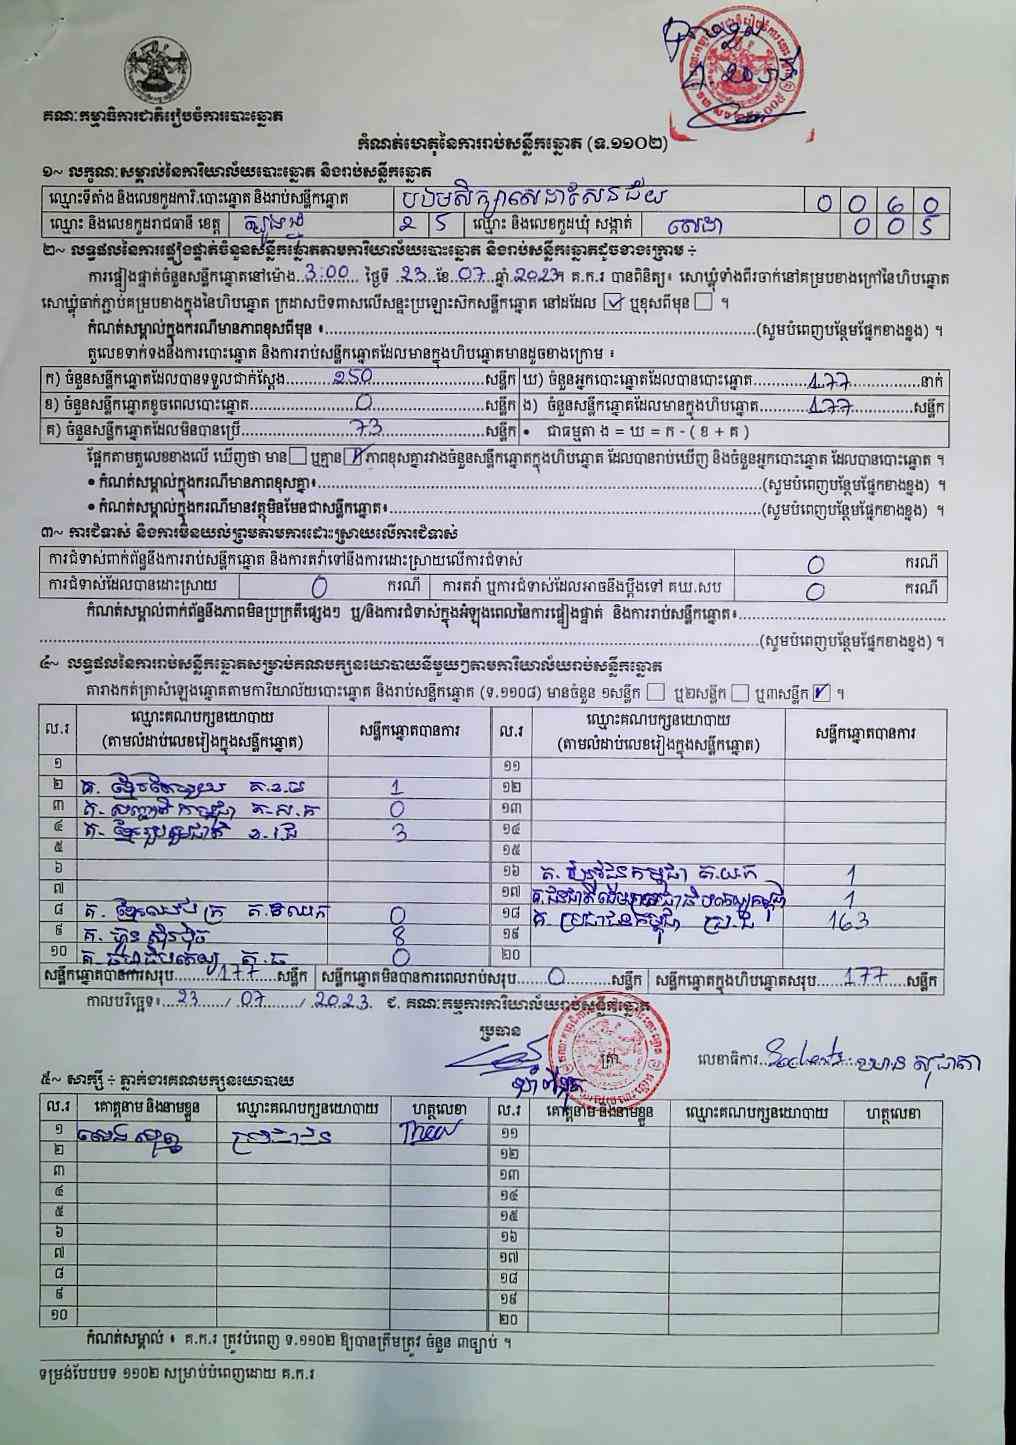 គណៈកម្មាធិការជាតិរៀបចំការបោះឆ្នោត
កំណត់ហេតុនៃការរាប់សន្លឹកឆ្នោត (ទ.១១០២)
១~ លក្ខណៈសម្គាល់នៃការិយាល័យបោះឆ្នោត និងរាប់សន្លឹកឆ្នោត
ឈ្មោះទីតាំង និងលេខកូដការិ.បោះឆ្នោត និងរាប់សន្លឹកឆ្នោត 0 0 6 0
ឈ្មោះ និងលេខកូដរាជធានី ខេត្ត ត្បូងឃ្មុំ 2 5 ឈ្មោះ និងលេខកូដឃុំ សង្កាត់ សេដា 0 0 5
២~ លទ្ធផលនៃការផ្ទៀងផ្ទាត់ចំនួនសន្លឹកឆ្នោតតាមការិយាល័យបោះឆ្នោត និងរាប់សន្លឹកឆ្នោតដូចខាងក្រោម ÷
ការផ្ទៀងផ្ទាត់ចំនួនសន្លឹកឆ្នោតនៅម៉ោង.3:00 ថ្ងៃទី 23 ខែ 07 ឆ្នាំ 2023។ គ.ក.រ បានពិនិត្យ៖ សោឃ្លុំទាំងពីរចាក់នៅគម្របខាងក្រៅនៃហិបឆ្នោត
សោឃ្លុំចាក់ភ្ជាប់គម្របខាងក្នុងនៃហិបឆ្នោត ក្រដាសបិទពាសលើសន្ទះប្រឡោះស៊កសន្លឹកឆ្នោត នៅដដែល ☑ ឬខុសពីមុន ☐ ។
កំណត់សម្គាល់ក្នុងករណីមានភាពខុសពីមុន ៖ (សូមបំពេញបន្ថែមផ្នែកខាងខ្នង) ។
តួលេខទាក់ទងនឹងការបោះឆ្នោត និងការរាប់សន្លឹកឆ្នោតដែលមានក្នុងហិបឆ្នោតមានដូចខាងក្រោម ៖
ក) ចំនួនសន្លឹកឆ្នោតដែលបានទទួលជាក់ស្តែង 250 សន្លឹក ឃ) ចំនួនអ្នកបោះឆ្នោតដែលបានបោះឆ្នោត 177 នាក់
ខ) ចំនួនសន្លឹកឆ្នោតខូចពេលបោះឆ្នោត 0 សន្លឹក ង) ចំនួនសន្លឹកឆ្នោតដែលមានក្នុងហិបឆ្នោត 177 សន្លឹក
គ) ចំនួនសន្លឹកឆ្នោតដែលមិនបានប្រើ 73 សន្លឹក • ជាធម្មតា ង = ឃ = ក - ( ខ + គ )
ផ្អែកតាមតួលេខខាងលើ ឃើញថា មាន ☐ ឬគ្មាន ☑ ភាពខុសគ្នារវាងចំនួនសន្លឹកឆ្នោតក្នុងហិបឆ្នោត ដែលបានរាប់ឃើញ និងចំនួនអ្នកបោះឆ្នោត ដែលបានបោះឆ្នោត ។
• កំណត់សម្គាល់ក្នុងករណីមានភាពខុសគ្នា៖ (សូមបំពេញបន្ថែមផ្នែកខាងខ្នង) ។
• កំណត់សម្គាល់ក្នុងករណីមានវត្ថុមិនមែនជាសន្លឹកឆ្នោត៖ (សូមបំពេញបន្ថែមផ្នែកខាងខ្នង) ។
៣~ ការជំទាស់ និងការមិនយល់ព្រមតាមការដោះស្រាយលើការជំទាស់
ការជំទាស់ពាក់ព័ន្ធនឹងការរាប់សន្លឹកឆ្នោត និងការតវ៉ាទៅនឹងការដោះស្រាយលើការជំទាស់ 0 ករណី
ការជំទាស់ដែលបានដោះស្រាយ 0 ករណី ការតវ៉ា ឬការជំទាស់ដែលអាចនឹងប្តឹងទៅ គឃ.សប 0 ករណី
កំណត់សម្គាល់ពាក់ព័ន្ធនឹងភាពមិនប្រក្រតីផ្សេងៗ ឬ/និងការជំទាស់ក្នុងអំឡុងពេលនៃការផ្ទៀងផ្ទាត់ និងការរាប់សន្លឹកឆ្នោត៖
(សូមបំពេញបន្ថែមផ្នែកខាងខ្នង) ។
៤~ លទ្ធផលនៃការរាប់សន្លឹកឆ្នោតសម្រាប់គណបក្សនយោបាយនីមួយៗតាមការិយាល័យរាប់សន្លឹកឆ្នោត
តារាងកត់ត្រាសំឡេងឆ្នោតតាមការិយាល័យបោះឆ្នោត និងរាប់សន្លឹកឆ្នោត (ទ.១១០៨) មានចំនួន ១សន្លឹក ☐ ឬ២សន្លឹក ☐ ឬ៣សន្លឹក ☑ ។
ល.រ ឈ្មោះគណបក្សនយោបាយ (តាមលំដាប់លេខរៀងក្នុងសន្លឹកឆ្នោត) សន្លឹកឆ្នោតបានការ ល.រ ឈ្មោះគណបក្សនយោបាយ (តាមលំដាប់លេខរៀងក្នុងសន្លឹកឆ្នោត) សន្លឹកឆ្នោតបានការ
១ ១១
២ គ. ខ្មែរតែមួយ គ.ខ.ម 1 ១២
៣ គ. សញ្ជាតិកម្ពុជា គ.ស.ក 0 ១៣
៤ គ. ខ្មែររួបរួមជាតិ 3 ១៤
៥ ១៥
៦ ១៦ គ. យុវជនកម្ពុជា គ.យ.ក 1
៧ ១៧ 1
៨ គ. ខ្មែរឈប់ក្រ 0 ១៨ គ. ប្រជាជនកម្ពុជា 163
៩ គ. ហ៊្វុនស៊ិនប៉ិច 8 ១៩
១០ គ. ធម្មាធិបតេយ្យ 0 ២០
សន្លឹកឆ្នោតបានការសរុប 177 សន្លឹក សន្លឹកឆ្នោតមិនបានការពេលរាប់សរុប 0 សន្លឹក សន្លឹកឆ្នោតក្នុងហិបឆ្នោតសរុប 177 សន្លឹក
កាលបរិច្ឆេទ៖ 23 / 07 / 2023 ជ. គណៈកម្មការការិយាល័យរាប់សន្លឹកឆ្នោត
ប្រធាន
លេខាធិការ
៥~ សាក្សី ÷ ភ្នាក់ងារគណបក្សនយោបាយ
ល.រ គោត្តនាម និងនាមខ្លួន ឈ្មោះគណបក្សនយោបាយ ហត្ថលេខា ល.រ គោត្តនាម និងនាមខ្លួន ឈ្មោះគណបក្សនយោបាយ ហត្ថលេខា
១ ប្រជាជន ១១
២ ១២
៣ ១៣
៤ ១៤
៥ ១៥
៦ ១៦
៧ ១៧
៨ ១៨
៩ ១៩
១០ ២០
កំណត់សម្គាល់ ៖ គ.ក.រ ត្រូវបំពេញ ទ.១១០២ ឱ្យបានត្រឹមត្រូវ ចំនួន ៣ច្បាប់ ។
ទម្រង់បែបបទ ១១០២ សម្រាប់បំពេញដោយ គ.ក.រ